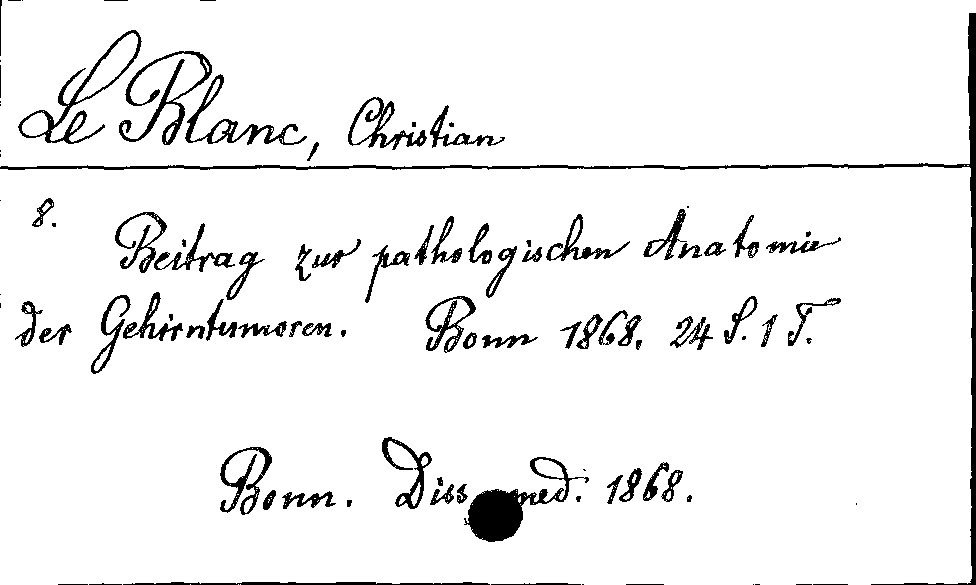 Le Blanc, Christian
8.
Beitrag zur pathologischen Anatomie
der Gehirntumoren. Bonn 1868. 24 S. 1 T.
Bonn. Diss. med. 1868.